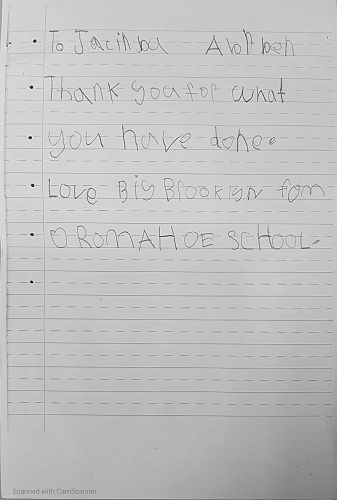 To Jacinba Alolpben
Thank you for what
you have done.
Love Big Brooklyn fom
OROMAHOE SCHOOL.
Scanned with CamScanner